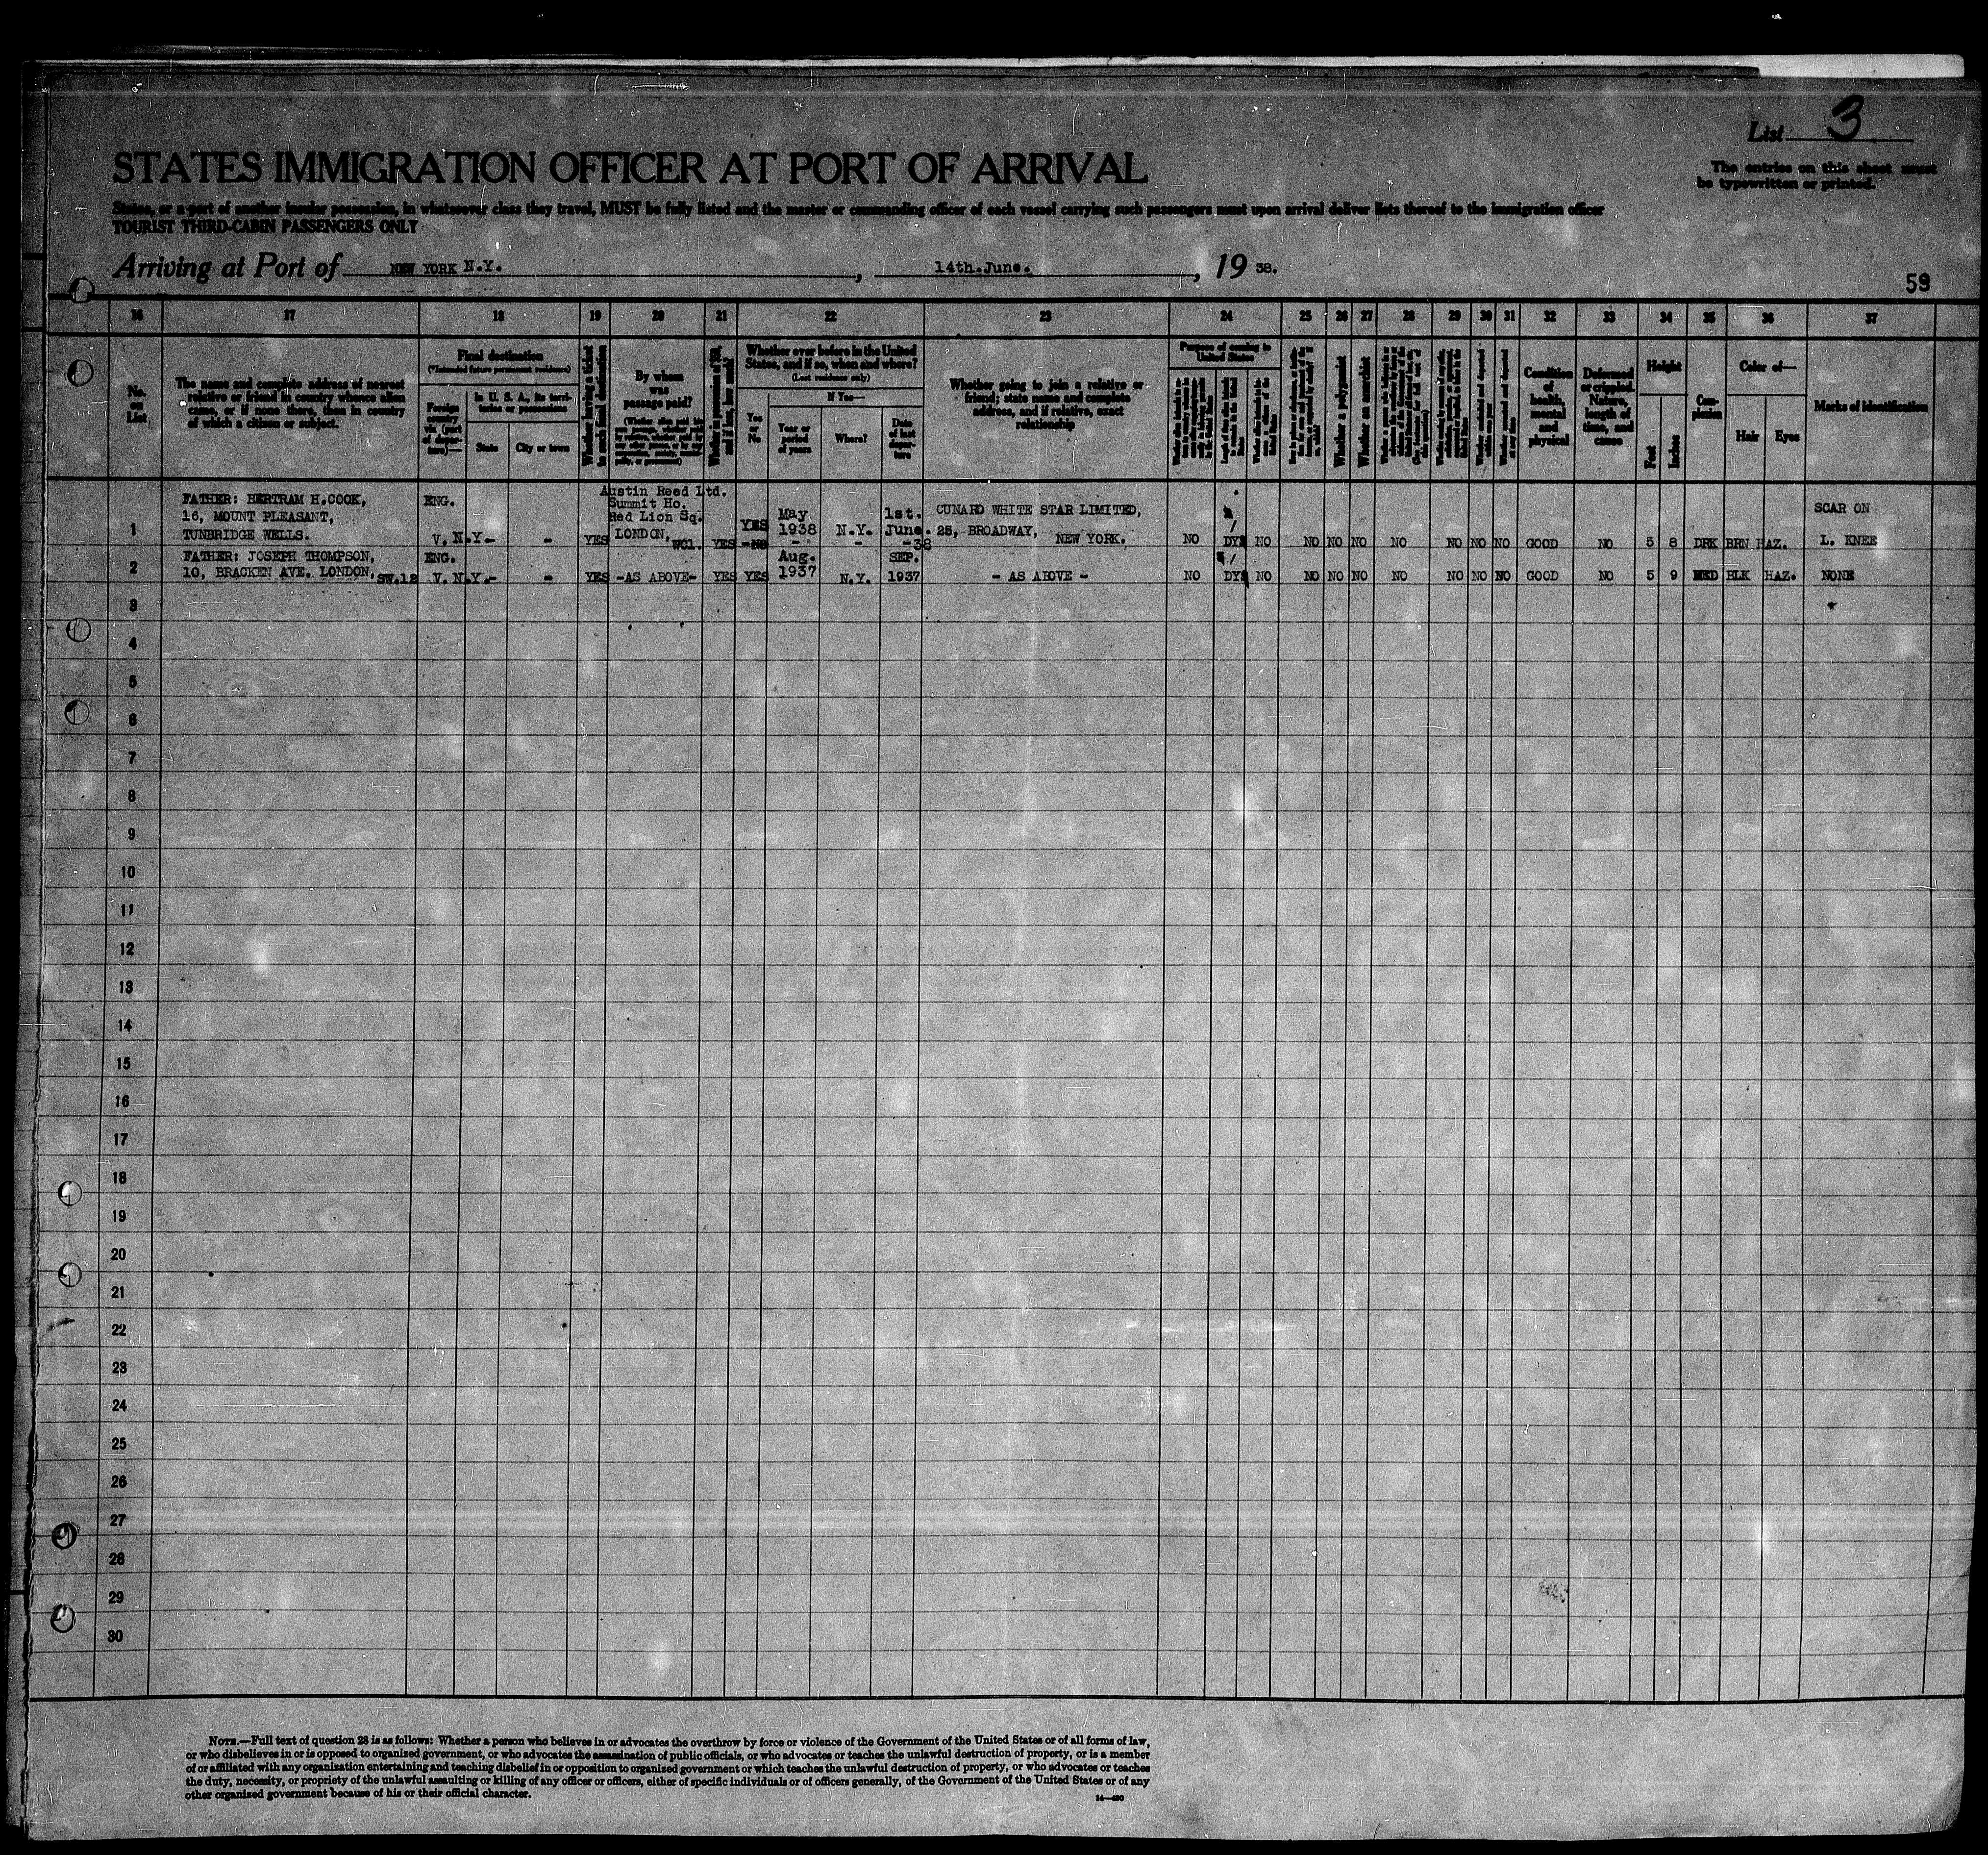 List 3
The entries on this sheet must
be typewritten or printed.
STATES IMMIGRATION OFFICER AT PORT OF ARRIVAL
States, or a port of another insular possession, in whatsoever class they travel, MUST be fully listed and the master or commanding officer of each vessel carrying such passengers must upon arrival deliver lists thereof to the immigration officer
TOURIST THIRD-CABIN PASSENGERS ONLY
Arriving at Port of NEW YORK N.Y., 14th.June., 19 38.
59
16 17 18 19 20 21 22 23 24 25 26 27 28 29 30 31 32 33 34 35 36 37
No.
on
List
The name and complete address of nearest
relative or friend in country whence alien
came, or if none there, then in country
of which a citizen or subject.
Final destination
(*Intended future permanent residence)
Foreign
country
In U. S. A., its terri-
tories or possessions
State
City or town
Whether having a ticket
to such final destination
By whom
was
passage paid?
Whether ever before in the United
States, and if so, when and where?
(Last residence only)
Yes
or
No
If Yes—
Year or
period
of years
Where?
Date
of last
depar-
ture
Whether going to join a relative or
friend; state name and complete
address, and if relative, exact
relationship
Purpose of coming to
United States
Whether a polygamist
Whether an anarchist
Condition
of
health,
mental
and
physical
Deformed
or crippled.
Nature,
length of
time, and
cause
Height
Feet
Inches
Com-
plexion
Color of—
Hair
Eyes
Marks of identification
1
FATHER: BERTRAM H.COOK,
16, MOUNT PLEASANT,
TUNBRIDGE WELLS.
ENG.
V. N.Y.- -
YES
Austin Reed Ltd.
Summit Ho.
Red Lion Sq.
LONDON, WC1.
YES
YES
- NO
May
1938
-
N.Y.
-
1st.
June.
- 38
CUNARD WHITE STAR LIMITED,
25, BROADWAY,
NEW YORK.
NO DYS NO NO NO NO NO NO NO NO GOOD NO 5 8 DRK BRN HAZ.
SCAR ON
L. KNEE
2
FATHER: JOSEPH THOMPSON,
10, BRACKEN AVE. LONDON, SW.12
ENG.
V. N.Y.- -
YES -AS ABOVE- YES YES
Aug.
1937
N.Y.
SEP.
1937
- AS ABOVE -
NO DYS NO NO NO NO NO NO NO NO GOOD NO 5 9 MED BLK HAZ. NONE
3
4
5
6
7
8
9
10
11
12
13
14
15
16
17
18
19
20
21
22
23
24
25
26
27
28
29
30
NOTE.—Full text of question 28 is as follows: Whether a person who believes in or advocates the overthrow by force or violence of the Government of the United States or of all forms of law,
or who disbelieves in or is opposed to organized government, or who advocates the assassination of public officials, or who advocates or teaches the unlawful destruction of property, or is a member
of or affiliated with any organization entertaining and teaching disbelief in or opposition to organized government or which teaches the unlawful destruction of property, or who advocates or teaches
the duty, necessity, or propriety of the unlawful assaulting or killing of any officer or officers, either of specific individuals or of officers generally, of the Government of the United States or of any
other organized government because of his or their official character.
14—430